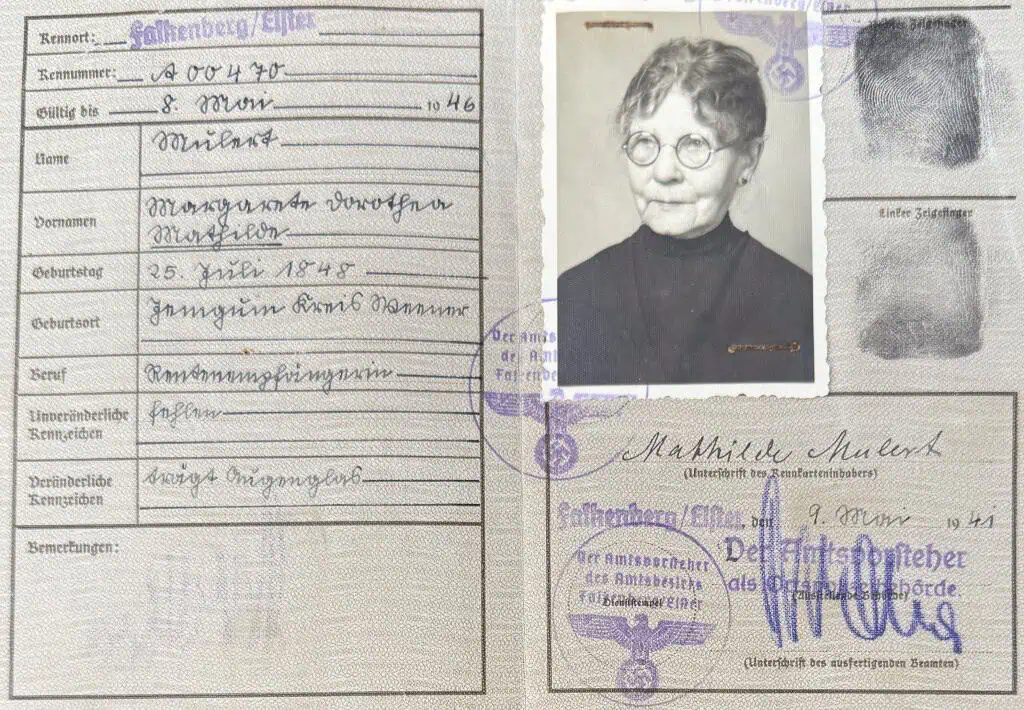 Kennort: Falkenberg/Elster
Kennummer: A 00470
Gültig bis 8. Mai 1946
Name Mulert
Vornamen Margarete Dorothea
Mathilde
Geburtstag 25. Juli 1848
Geburtsort Jemgum Kreis Weener
Beruf Rentenempfängerin
Unveränderliche Kennzeichen fehlen
Veränderliche Kennzeichen trägt Augenglas
Bemerkungen:
Zeigefinger
Linker Zeigefinger
Der Amts
des Amt
Falkenbe
Mathilde Mulert
(Unterschrift des Kennkarteninhabers)
Falkenberg/Elster, den 9. Mai 1941
Der Amtsvorsteher
als Ortspolizeibehörde.
(Ausstellende Behörde)
Der Amtsvorsteher
des Amtsbezirks
Falkenberg/Elster
Dienststempel
(Unterschrift des ausfertigenden Beamten)